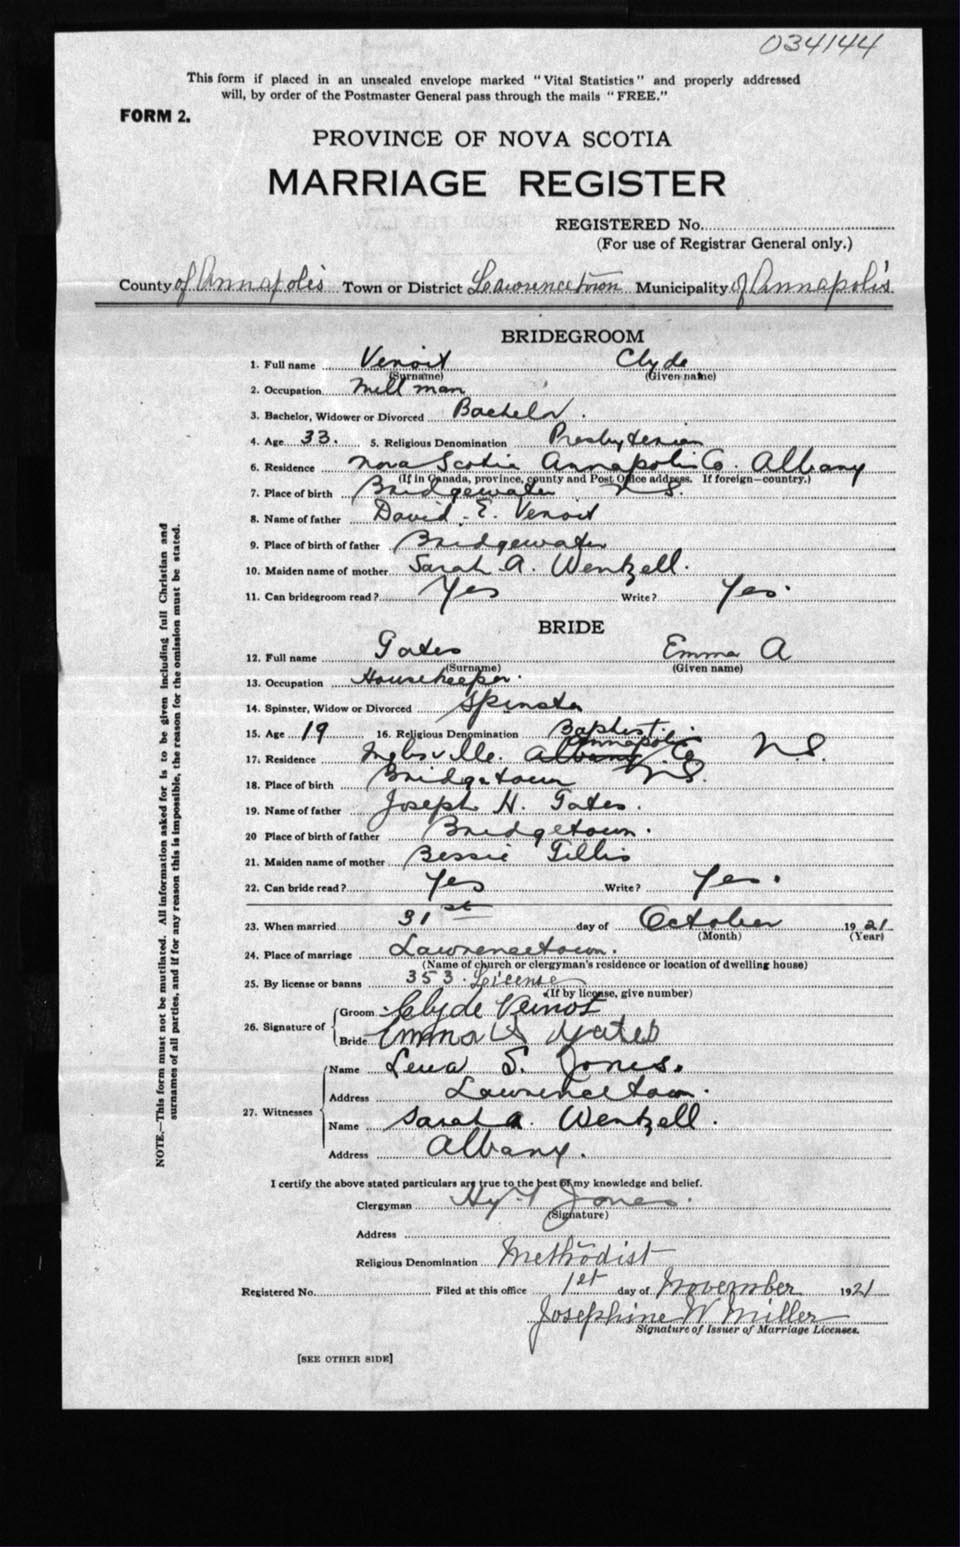 034144
This form if placed in an unsealed envelope marked "Vital Statistics" and properly addressed
will, by order of the Postmaster General pass through the mails "FREE."
FORM 2.
PROVINCE OF NOVA SCOTIA
MARRIAGE REGISTER
REGISTERED No.
(For use of Registrar General only.)
County of Annapolis Town or District Lawrencetown Municipality of Annapolis
BRIDEGROOM
1. Full name Venoit Clyde
(Surname) (Given name)
2. Occupation Mill man
3. Bachelor, Widower or Divorced Bachelor.
4. Age 33. 5. Religious Denomination Presbyterian
6. Residence Nova Scotia Annapolis Co. Albany
(If in Canada, province, county and Post Office address. If foreign—country.)
7. Place of birth Bridgewater N.S.
8. Name of father David. E. Venoit
9. Place of birth of father Bridgewater
10. Maiden name of mother Sarah A. Wentzell.
11. Can bridegroom read? Yes Write? Yes.
BRIDE
12. Full name Gates Emma A
(Surname) (Given name)
13. Occupation Housekeeper.
14. Spinster, Widow or Divorced Spinster
15. Age 19 16. Religious Denomination Baptist.
Annapolis
17. Residence Albany Co N.S.
18. Place of birth Bridgetown N.S.
19. Name of father Joseph H. Gates.
20 Place of birth of father Bridgetown.
21. Maiden name of mother Bessie Gillis
22. Can bride read? Yes Write? Yes.
23. When married 31st day of October 1921
(Month) (Year)
24. Place of marriage Lawrencetown.
(Name of church or clergyman's residence or location of dwelling house)
25. By license or banns 353. License
(If by license, give number)
26. Signature of Groom Clyde Veinot
Bride Emma A Gates
27. Witnesses
Name Lena S. Jones.
Address Lawrencetown.
Name Sarah A. Wentzell.
Address Albany.
I certify the above stated particulars are true to the best of my knowledge and belief.
Clergyman Jones.
(Signature)
Address
Religious Denomination Methodist
Registered No. Filed at this office 1st day of November 1921
Josephine W Miller
Signature of Issuer of Marriage Licenses.
[SEE OTHER SIDE]
NOTE.—This form must not be mutilated. All information asked for is to be given including full Christian and
surnames of all parties, and if for any reason this is impossible, the reason for the omission must be stated.